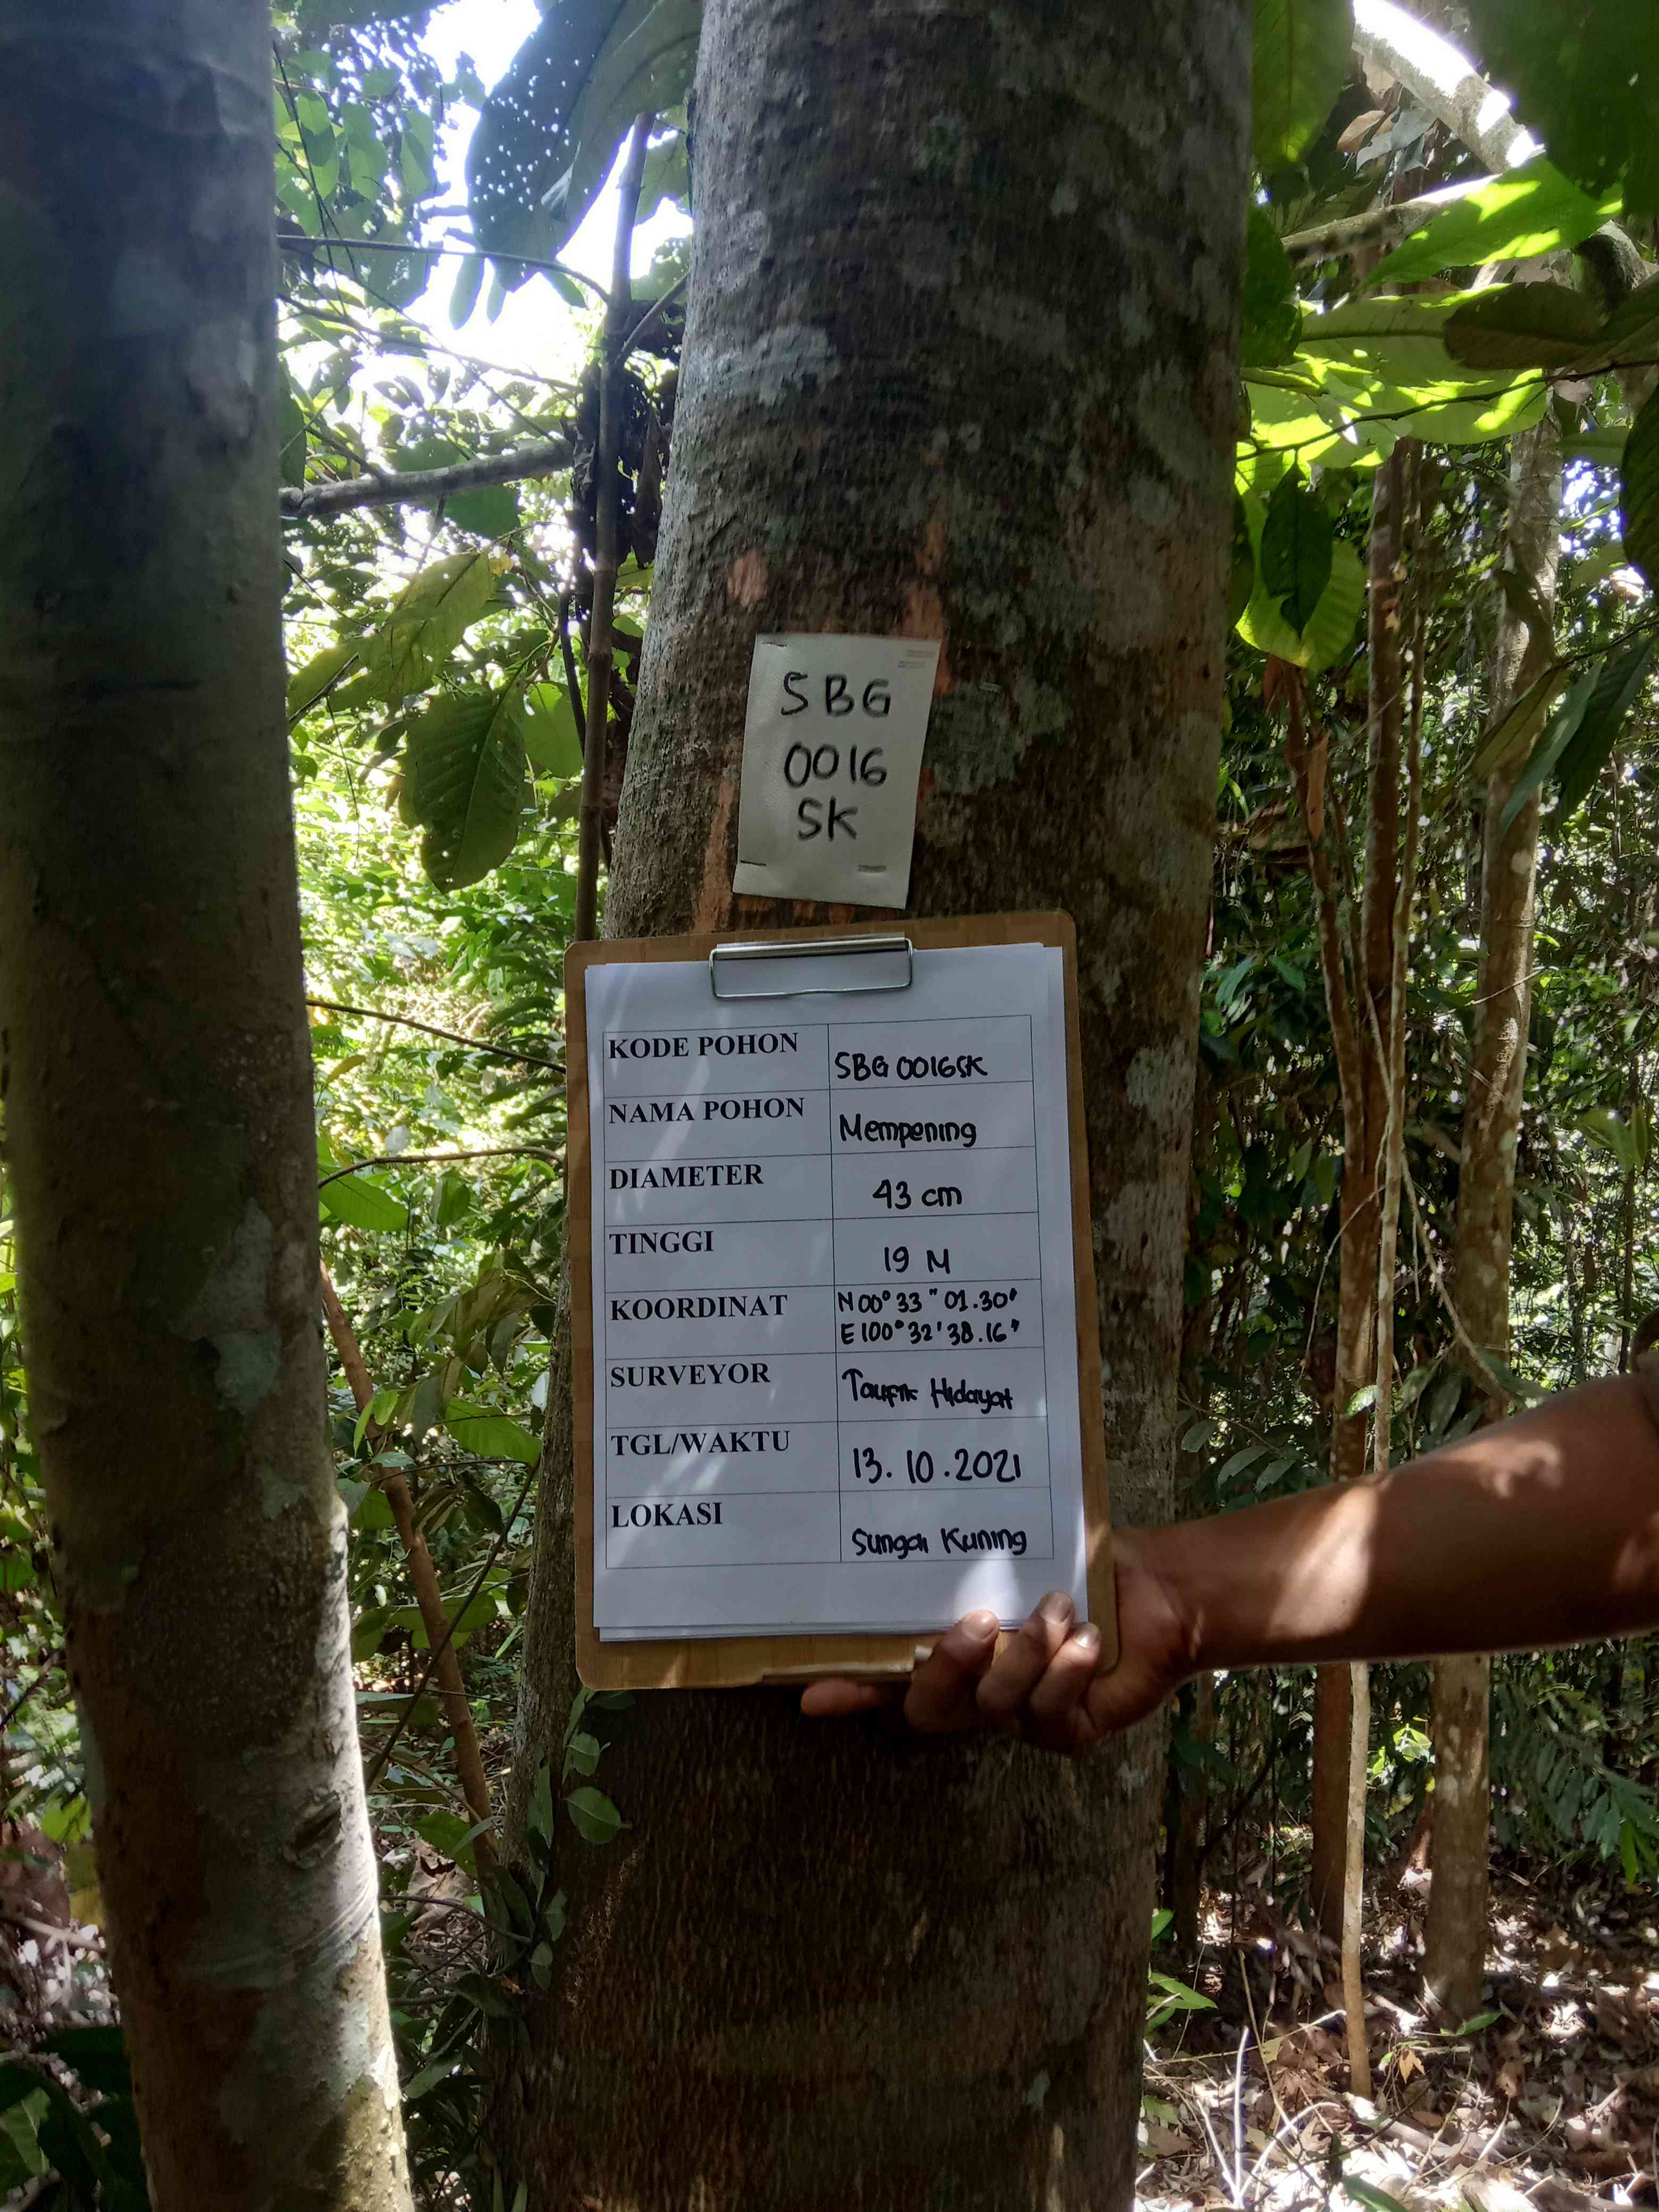 SBG
0016
SK
KODE POHON SBG 0016SK
NAMA POHON Mempening
DIAMETER 43 cm
TINGGI 19 M
KOORDINAT N 00° 33 " 01.30'
E 100° 32' 38.16"
SURVEYOR Taufik Hidayat
TGL/WAKTU 13. 10 . 2021
LOKASI Sungai Kuning